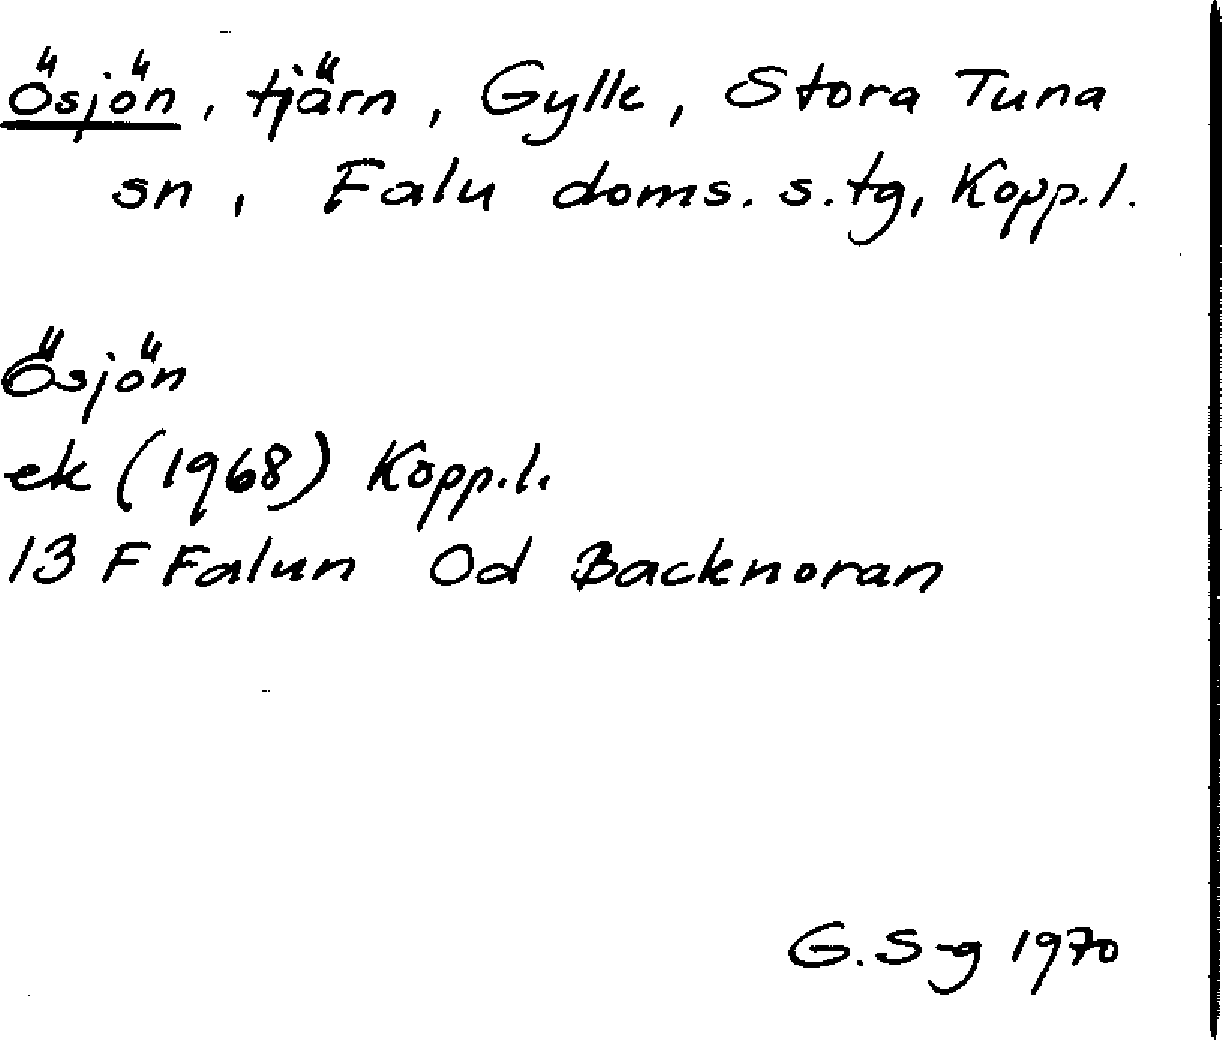 Ösjön, tjärn, Gylle, Stora Tuna
sn, Falu doms. s. tg, Kopp.l.
Ösjön
ek (1968) Kopp.l.
13 F Falun 0d Backnoran
G. S-g 1970